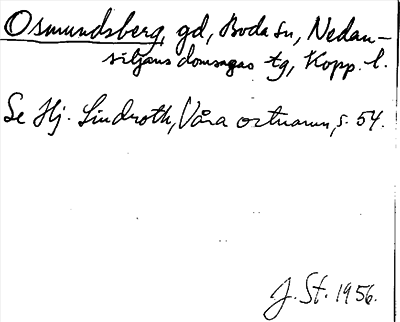 Osmundsberg, gd, Boda sn, Nedan-
siljans domsagas tg, Kopp. l.
Se Hj. Lindroth, Våra ortnamn, s. 54.
J. St. 1956.